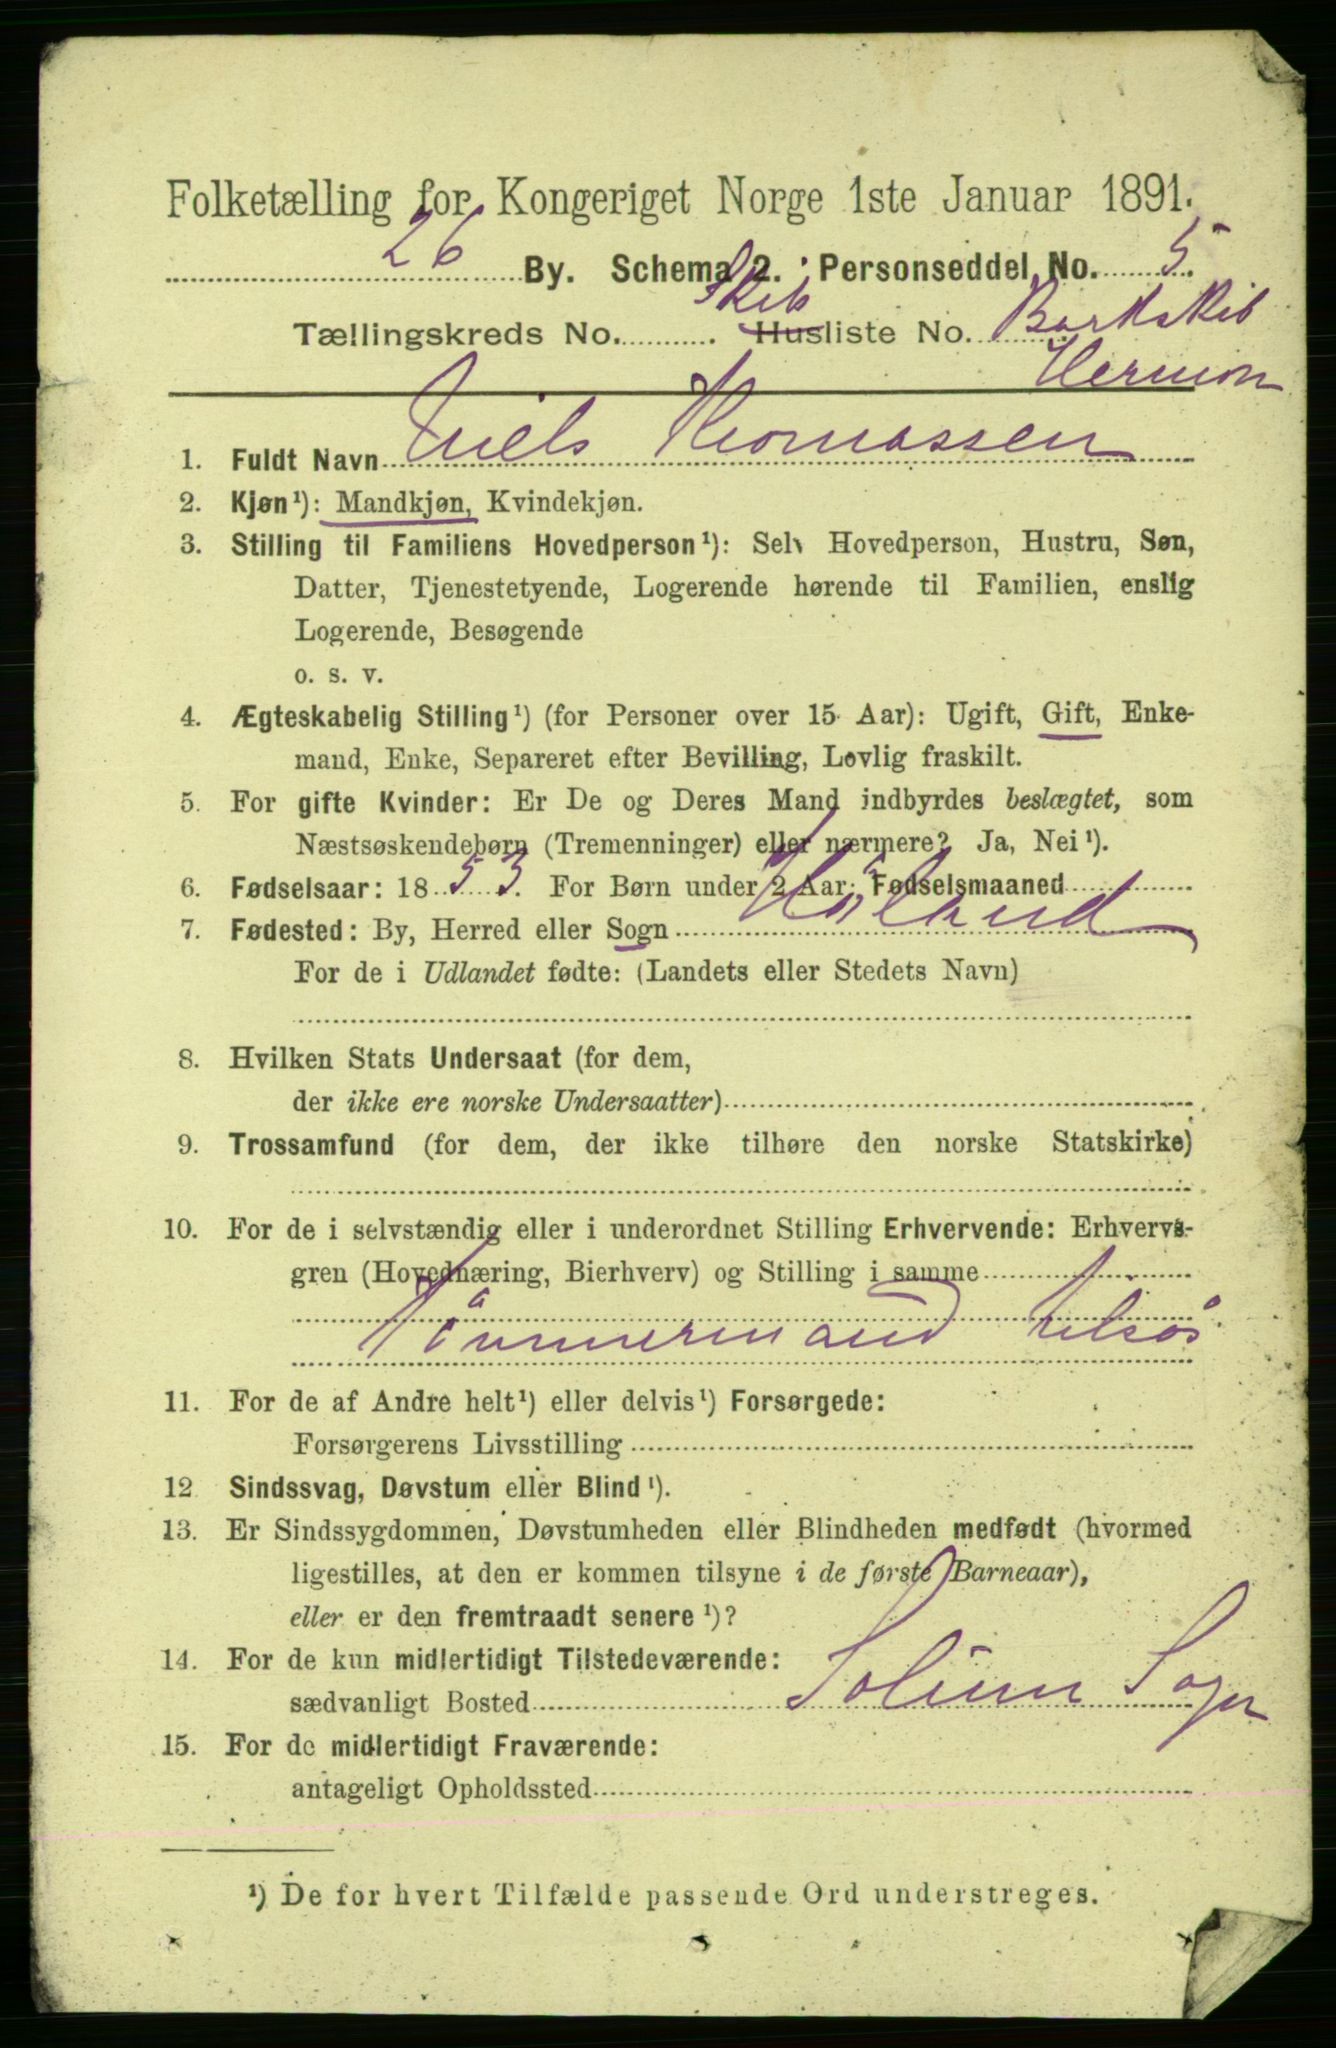 Folketælling for Kongeriget Norge 1ste Januar 1891.
26 By. Schema 2. Personseddel No. 5
Skib
Tællingskreds No. Husliste No. Barkskib
Hermon
1. Fuldt Navn Niels Thomassen
2. Kjøn¹): Mandkjøn, Kvindekjøn.
3. Stilling til Familiens Hovedperson¹): Selv Hovedperson, Hustru, Søn,
Datter, Tjenestetyende, Logerende hørende til Familien, enslig
Logerende, Besøgende
o. s. v.
4. Ægteskabelig Stilling¹) (for Personer over 15 Aar): Ugift, Gift, Enke-
mand, Enke, Separeret efter Bevilling, Lovlig fraskilt.
5. For gifte Kvinder: Er De og Deres Mand indbyrdes beslægtet, som
Næstsøskendebørn (Tremenninger) eller nærmere? Ja, Nei¹).
6. Fødselsaar: 1853. For Børn under 2 Aar: Fødselsmaaned
7. Fødested: By, Herred eller Sogn Höland
For de i Udlandet fødte: (Landets eller Stedets Navn)
8. Hvilken Stats Undersaat (for dem,
der ikke ere norske Undersaatter)
9. Trossamfund (for dem, der ikke tilhøre den norske Statskirke)
10. For de i selvstændig eller i underordnet Stilling Erhvervende: Erhvervs-
gren (Hovednæring, Bierhverv) og Stilling i samme
Tömmermand tilsös
11. For de af Andre helt¹) eller delvis¹) Forsørgede:
Forsørgerens Livsstilling
12 Sindssvag, Døvstum eller Blind¹).
13. Er Sindssygdommen, Døvstumheden eller Blindheden medfødt (hvormed
ligestilles, at den er kommen tilsyne i de første Barneaar),
eller er den fremtraadt senere¹)?
14. For de kun midlertidigt Tilstedeværende:
sædvanligt Bosted Solum Sogn
15. For de midlertidigt Fraværende:
antageligt Opholdssted
¹) De for hvert Tilfælde passende Ord understreges.